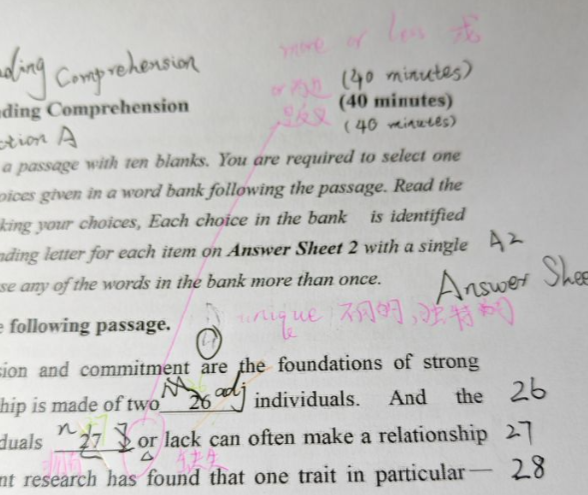 more or less 或
ading Comprehension
(40 minutes)
ding Comprehension (40 minutes)
(40 minutes)
ction A
a passage with ten blanks. You are required to select one
oices given in a word bank following the passage. Read the
king your choices, Each choice in the bank is identified
nding letter for each item on Answer Sheet 2 with a single A2
se any of the words in the bank more than once.
Answer Shee
unique 不同的,独特的
e following passage.
sion and commitment are the foundations of strong
hip is made of two 26 adj individuals. And the 26
duals n 27 or lack can often make a relationship 27
nt research has found that one trait in particular— 28